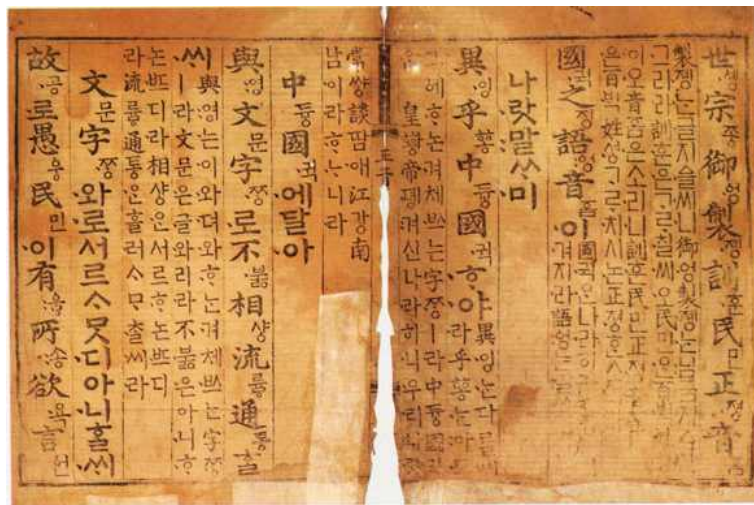 世솅宗조ᇰ御ᅌᅥᆼ製졩訓훈民민正져ᇰ音ᅙᅳᆷ
製졩ᄂᆞᆫ글지ᅀᅳᆯ씨니御ᅌᅥᆼ製졩ᄂᆞᆫ님금지ᅀᅳ샨
그리라訓훈은ᄀᆞᄅᆞ칠씨오民민ᄋᆞᆫ
이오音ᅙᅳᆷ은소리니訓훈民민正져ᇰ音ᅙᅳᆷ
은百ᄇᆡᆨ姓셔ᇰᄀᆞᄅᆞ치시논正져ᇰᄒᆞᆫ소리
國귁之징語ᅌᅥᆼ音ᅙᅳᆷ이國귁ᄋᆞᆫ나라히라
겨지라語ᅌᅥᆼ는
나랏말ᄊᆞ미
異잉乎ᅘᅩᆼ中듀ᇰ國귁ᄒᆞ야異잉는다ᄅᆞᆯ씨
라乎ᅘᅩᆼ는아모
ᄒᆞ논겨체ᄡᅳ는字ᄍᆞᆼㅣ라中듀ᇰ國귁
皇ᅘᅪᇰ帝뎽겨신나라히니우리나랏
常쌰ᇰ談땀애江가ᇰ南
남이라ᄒᆞᄂᆞ니라
中듀ᇰ國귁에달아
與영文문字ᄍᆞᆼ로不부ᇙ相샤ᇰ流류ᇢ通토ᇰᄒᆞᆯᄊᆡ
與영는이와뎌와ᄒᆞ는겨체ᄡᅳ는字ᄍᆞᆼ
ㅣ라文문은글와리라不부ᇙ은아니ᄒᆞ
논ᄠᅳ디라相샤ᇰᄋᆞᆫ서르ᄒᆞ논ᄠᅳ디
라流류ᇢ通토ᇰ은흘러ᄉᆞᄆᆞᄎᆞᆯ씨라
文문字ᄍᆞᆼ와로서르ᄉᆞᄆᆞᆺ디아니ᄒᆞᆯᄊᆡ
故공로愚ᅌᅮᆼ民민이有우ᇢ所송欲욕言ᅌᅥᆫ